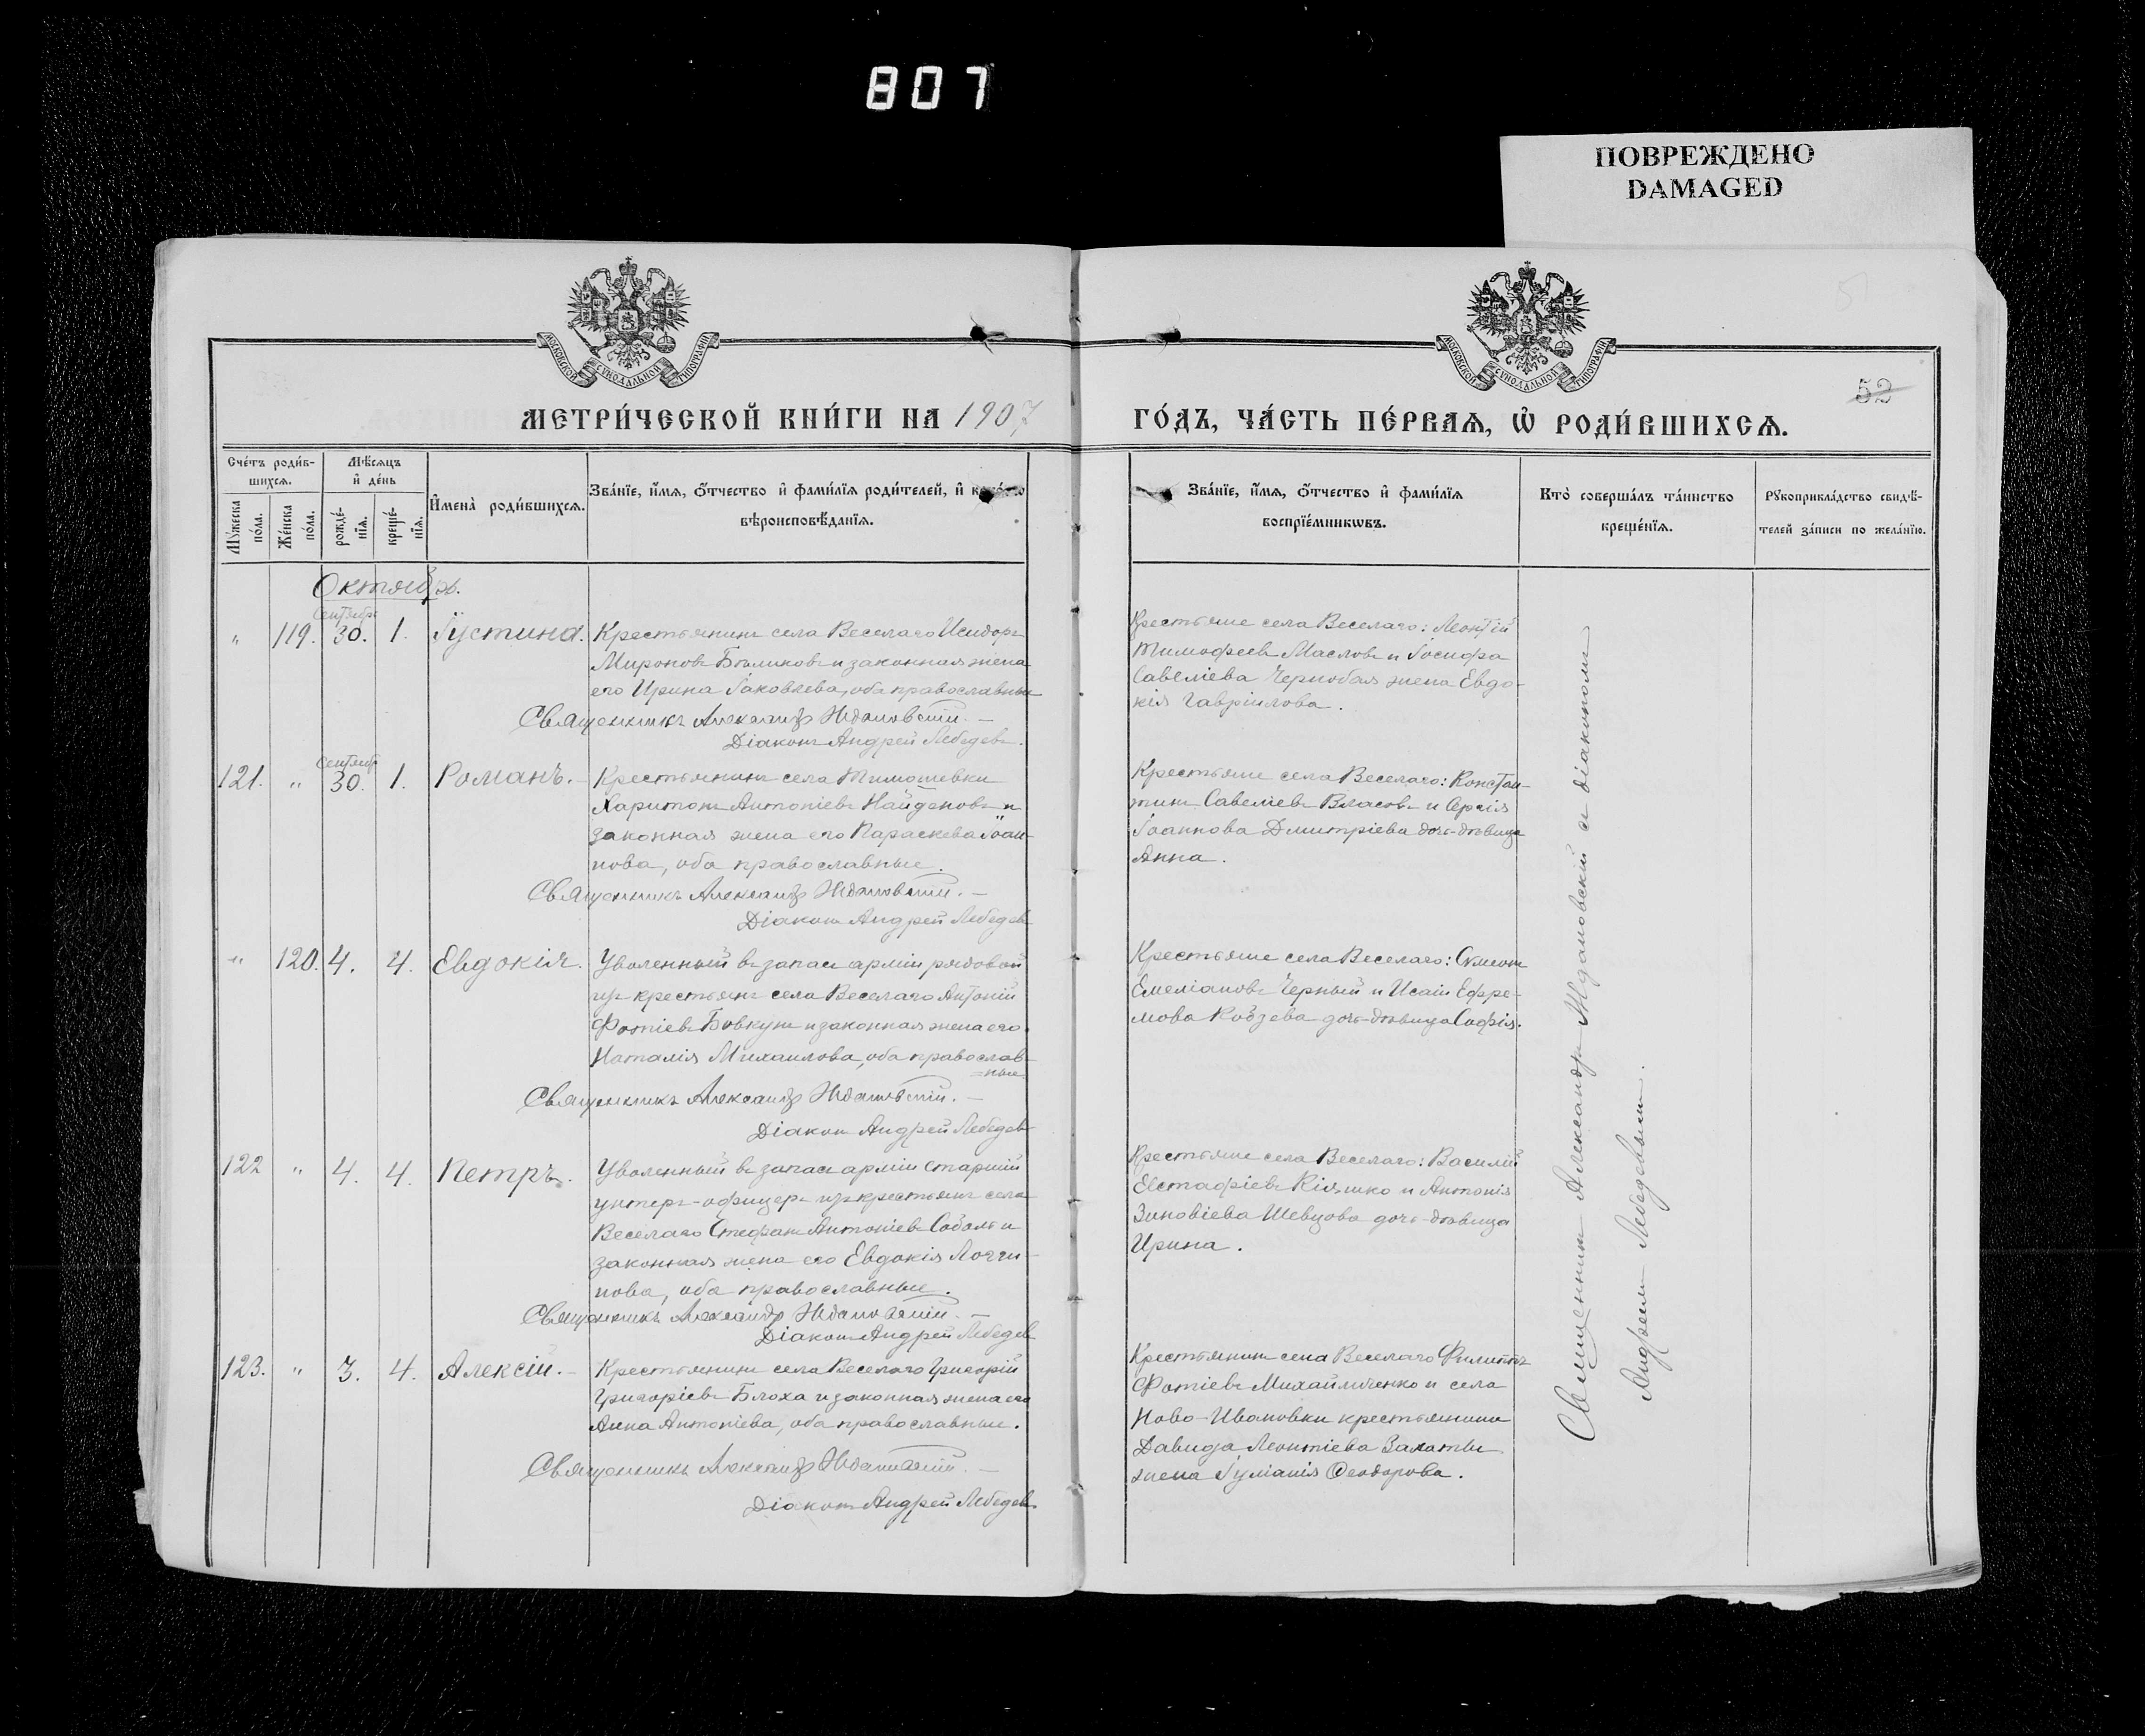 807
ПОВРЕЖДЕНО
DAMAGED
МОСКОВСКОЙ СУНОДАЛЬНОЙ ТИПОГРАФІИ
МОСКОВСКОЙ СУНОДАЛЬНОЙ ТИПОГРАФІИ
52
МЕТРИ́ЧЕСКОЙ КНИ́ГИ НА 1907
ГО́ДЪ, ЧА́СТЬ ПЕ́РВАѦ, Ѡ҆ РОДИ́ВШИХСѦ.
Сче́тъ роди́в-
шихсѧ.
Мѣ́сѧцъ
и҆ де́нь
Му́жеска
по́ла.
Же́нска
по́ла.
рожде́-
нїѧ.
креще́-
нїѧ.
И҆мена̀ роди́вшихсѧ.
Зва́нїе, и҆́мѧ, ѻ҆́тчество и҆ фами́лїѧ роди́телей, и҆
вѣроисповѣ́данїѧ.
Зва́нїе, и҆́мѧ, ѻ҆́тчество и҆ фами́лїѧ
воспрїе́мникѡвъ.
Кто̀ соверша́лъ та́инство
креще́нїѧ.
Рꙋкоприкла́дство свидѣ́-
телей за́писи по жела́нїю.
Октябрь.
Сентябр.
" 119. 30. 1. Іустина. Крестьянинъ села Веселаго Исидоръ
Мироновъ Бѣликовъ и законная жена
его Ирина Іаковлева, оба православные
Священникъ Александръ Ждановскій. —
Діаконъ Андрей Лебедевъ.
Крестьяне села Веселаго: Леонтій
Тимофеевъ Масловъ и Іосифа
Савеліева Чернобая жена Евдо-
кія Гавріилова.
Сентябр
121. " 30. 1. Романъ. Крестьянинъ села Тимошевки
Харитонъ Антоніевъ Найденовъ и
законная жена его Параскева Іоан-
нова, оба православные.
Священникъ Александръ Ждановскій. —
Діаконъ Андрей Лебедевъ
Крестьяне села Веселаго: Констан-
тинъ Савеліевъ Власовъ и Сергія
Іоаннова Дмитріева дочь-дѣвица
Анна.
" 120. 4. 4. Евдокія. Уволенный въ запасъ арміи рядовой
изъ крестьянъ села Веселаго Антоній
Фотіевъ Бовкунъ и законная жена его
Наталія Михаилова, оба православ-
=ные.
Священникъ Александръ Ждановскій. —
Діаконъ Андрей Лебедевъ
Крестьяне села Веселаго: Симеонъ
Емеліановъ Черный и Исаіи Ефре-
мова Кобзева дочь-дѣвица Софія.
122 " 4. 4. Петръ. Уволенный въ запасъ арміи старшій
унтеръ-офицеръ изъ крестьянъ села
Веселаго Стефанъ Антоніевъ Соболь и
законная жена его Евдокія Логги-
нова, оба православные.
Священникъ Александръ Ждановскій. —
Діаконъ Андрей Лебедевъ
Крестьяне села Веселаго: Василій
Евстафіевъ Кіяшко и Антонія
Зиновіева Шевцова дочь-дѣвица
Ирина.
123. " 3. 4. Алексій. Крестьянинъ села Веселаго Григорій
Григоріевъ Блоха и законная жена его
Анна Антоніева, оба православные.
Священникъ Александръ Ждановскій. —
Діаконъ Андрей Лебедевъ
Крестьянинъ села Веселаго Филиппъ
Фотіевъ Михайличенко и села
Ново-Ивановки крестьянина
Давида Леонтіева
жена Іуліанія Ѳеодорова.
Священникъ Александръ Ждановскій и діаконъ
Андреем Лебедевым.